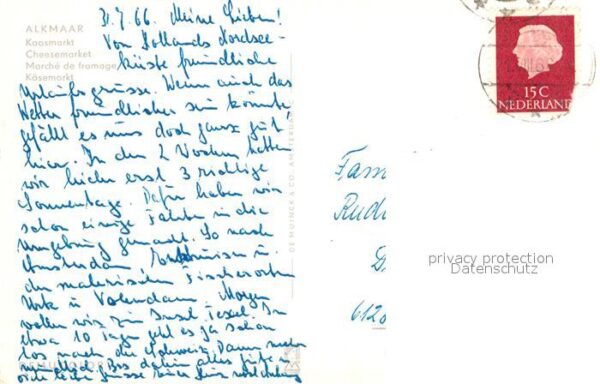 31.7.66. Meine Lieben!
ALKMAAR
Kaasmarkt
Cheesemarket
Marché de fromage
Käsemarkt
Von Hollands Nordsee-
küste freundliche
Urlaubsgrüsse. Wenn auch das
Wetter freundlicher sein könnte
gefällt es uns doch ganz gut
hier. In den 2 Wochen hatten
wir bisher erst 3 richtige
Sonnentage. Dafür haben wir
schon einige Fahrten in die
Umgebung gemacht. So nach
Amsterdam, u.
den malerischen Fischerorten
Urk u. Volendam. Morgen
wollen wir zur Insel Texel. In
etwa 10 Tagen geht es ja schon
los nach der Schweiz. Dann mehr
mündlich. Bis dahin alles Gute u.
recht liebe Grüsse
DE MUINCK & CO. AMSTERDAM
15 C
NEDERLAND
Fam
Rud
612
privacy protection
Datenschutz